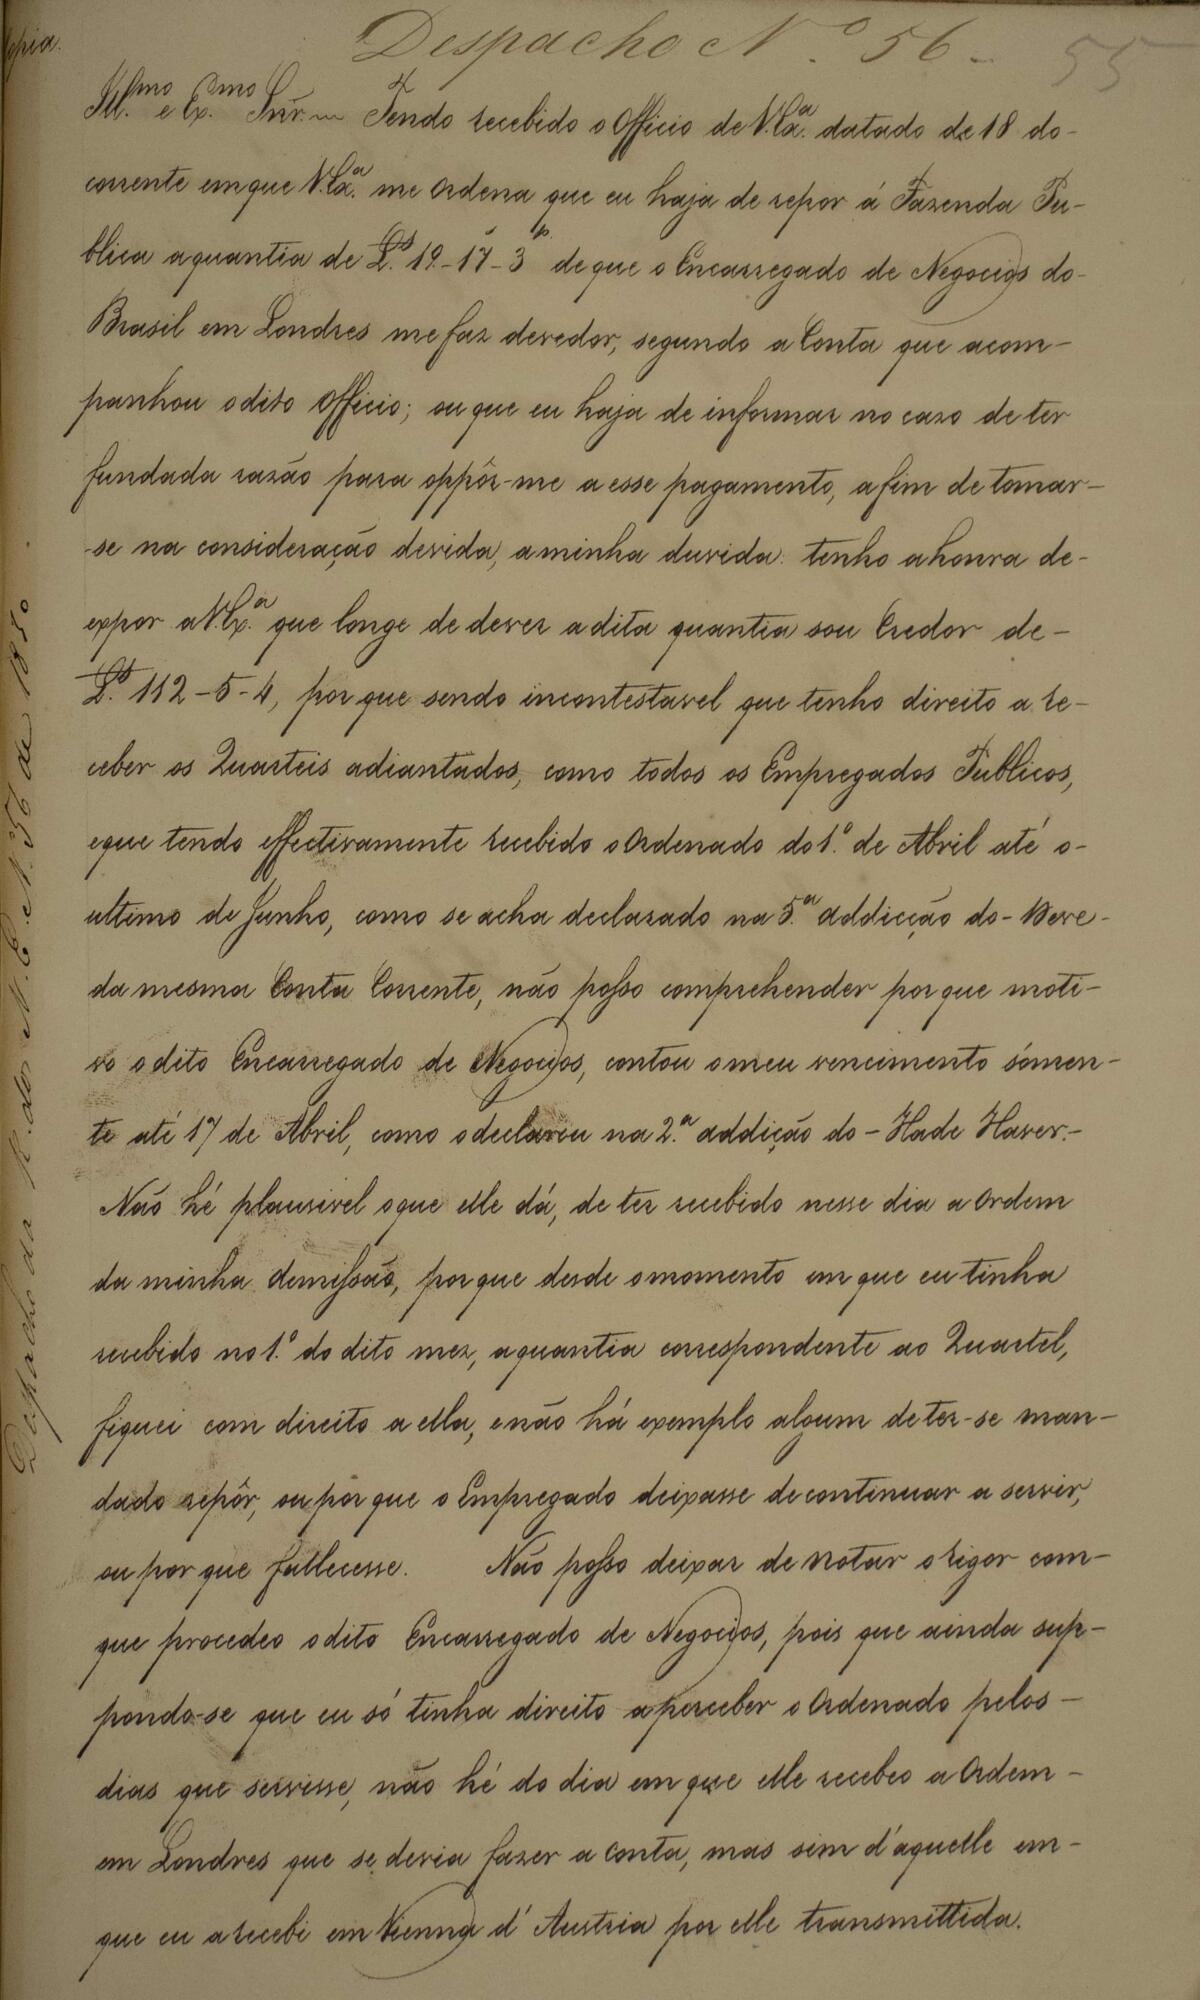 Copia.
Despacho N.º 56.
55
Ill.mo e Ex.mo Snr. Tendo recebido o Officio de V.Ex.ª datado de 18 do-
corrente em que V.Ex.ª me ordena que eu haja de repor á Fazenda Pu-
blica a quantia de L.s 19-17-3 p. de que o Encarregado de Negocios do-
Brasil em Londres me faz devedor, segundo a Conta que acom-
panhou o dito Officio; ou que eu haja de informar no caso de ter
fundada razão para oppôr-me a esse pagamento, a fim de tomar-
-se na consideração devida, a minha duvida: tenho a honra de-
expor a V.Ex.ª que longe de dever a dita quantia sou Credor de-
L.s 112-5-4, por que sendo incontestavel que tenho direito a re-
ceber os Quarteis adiantados, como todos os Empregados Publicos,
e que tendo effectivamente recebido o Ordenado do 1.º de Abril até o-
ultimo de Junho, como se acha declarado na 5.ª addicção do-Deve-
da mesma Conta Corrente, não posso comprehender por que moti-
vo o dito Encarregado de Negocios, contou o meu vencimento sómen-
te até 17 de Abril, como o declarou na 2.ª addição do-Hade Haver.-
Não hé plausivel o que elle dá, de ter recebido nesse dia a Ordem
da minha demissão, por que desde o momento em que eu tinha
recebido no 1.º do dito mez, a quantia correspondente ao Quartel,
fiquei com direito a ella, e não há exemplo algum de ter-se man-
dado repôr, ou por que o Empregado deixasse de continuar a servir,
ou por que fallecesse. Não posso deixar de notar o rigor com-
que procedeo o dito Encarregado de Negocios, pois que ainda sup-
pondo-se que eu só tinha direito a perceber o Ordenado pelos-
dias que servisse, não hé do dia em que elle recebeo a Ordem-
em Londres que se devia fazer a conta, mas sim d'aquelle em-
que eu a recebi em Vienna d'Austria por elle transmittida.
Despacho da R. dos N. E. N. 56 de 1830.